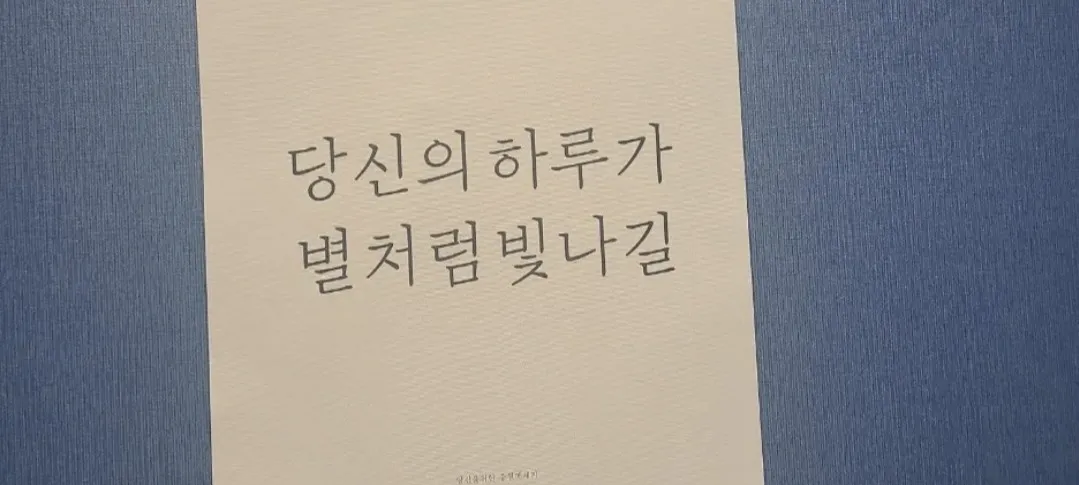 당신의 하루가
별처럼 빛나길